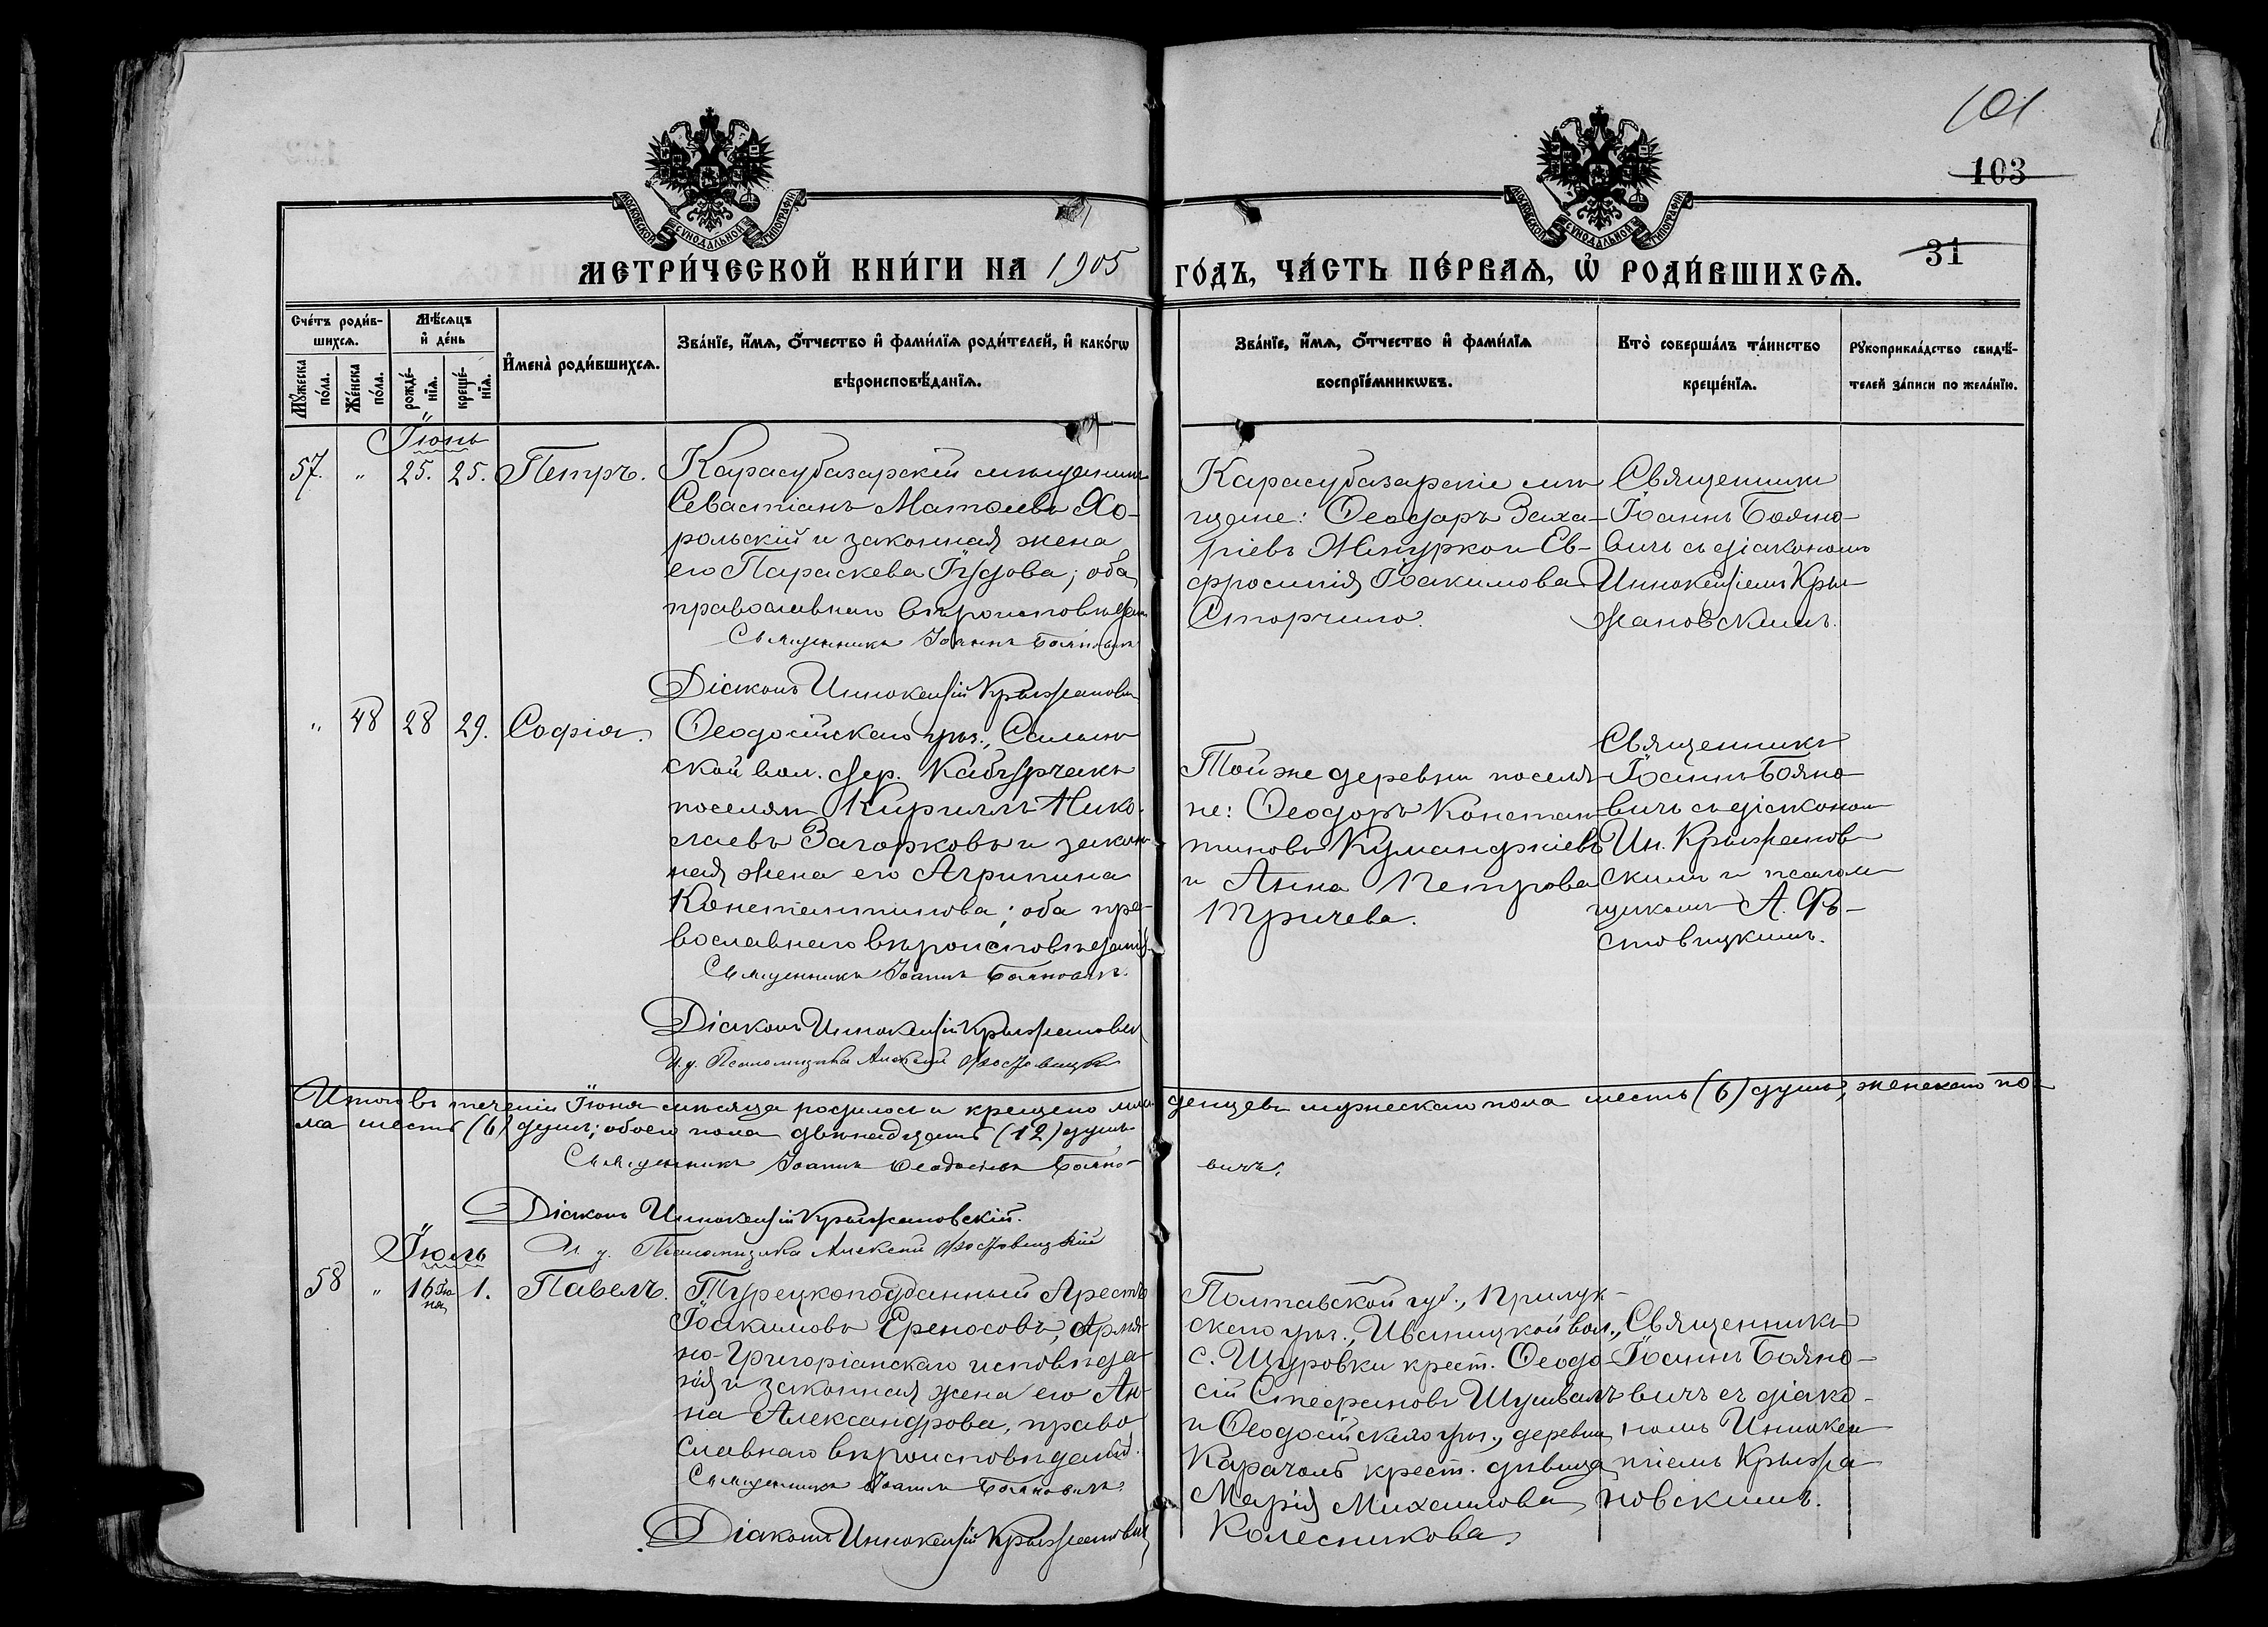 101
103
31
МОСКОВСКОЙ СУНОДАЛЬНОЙ ТИПОГРАФІИ
МОСКОВСКОЙ СУНОДАЛЬНОЙ ТИПОГРАФІИ
МЕТРИ́ЧЕСКОЙ КНИ́ГИ НА 1905
ГО́ДЪ, ЧА́СТЬ ПЕ́РВАѦ, Ѡ҆ РОДИ́ВШИХСѦ.
Сче́тъ роди́в-
шихсѧ.
Мꙋ́жеска по́ла.
Же́нска по́ла.
Мѣ́сѧцъ
и҆ де́нь
рожде́-
нїѧ.
креще́-
нїѧ.
И҆мена̀ роди́вшихсѧ.
Зва́нїе, и҆́мѧ, ѻ҆́тчество и҆ фами́лїѧ роди́телей, и҆ како́гѡ
вѣроисповѣ́данїѧ.
Зва́нїе, и҆́мѧ, ѻ҆́тчество и҆ фами́лїѧ
воспрїе́мникѡвъ.
Кто̀ соверша́лъ та́инство
креще́нїѧ.
Рꙋкоприкла́дство свидѣ́-
телей за́писи по жела́нїю.
Іюнь
57. " 25. 25. Петръ.
Карасубазарскій мѣщанинъ
Севастіанъ Матѳіевъ Хо-
рольскій и законная жена
его Параскева Іудова; оба
православнаго вѣроисповѣдан.
Священникъ Іоаннъ Бояновичъ
Діаконъ Иннокентій Крыжановскі
Карасубазарскіе мѣ
щане: Ѳеодоръ Заха-
ріевъ и Ев-
фросинія Іоакимова
Сторчило.
Священникъ
Іоаннъ Бояно-
вичъ съ діакономъ
Иннокентіемъ Кры
жановскимъ.
" 48 28 29. Софія.
Ѳеодосійскаго уѣз., Салын-
ской вол. дер. Кабурчакъ
поселян. Кириллъ Нико-
лаевъ Загорковъ и закон-
ная жена его Агрипина
Константинова; оба пра-
вославнаго вѣроисповѣданія.
Священникъ Іоаннъ Бояновичъ.
Діаконъ Иннокентій Крыжановскі
И. д. Псаломщика Алексій
Той же деревни поселя-
не: Ѳеодоръ Констан-
тиновъ Куманджіевъ
и Анна Петрова
Пуричева.
Священникъ
Іоаннъ Бояно
вичъ съ діаконом
Ин. Крыжанов-
скимъ и псалом-
щикомъ А.
Итого въ теченіи Іюня мѣсяца родилось и крещено мла-
денцевъ мужескаго пола шесть (6) душъ, женскаго по-
ла шесть (6) душъ; обоего пола двѣнадцать (12) душъ
Священникъ Іоаннъ Ѳеодосіевъ Бояно-
вичъ.
Діаконъ Иннокентій Крыжановскій.
И. д. Псаломщика Алексій
Іюль
58 " 16 Іюня 1. Павелъ.
Турецкоподданный Арестъ
Іоакимовъ Ереносовъ, Армя-
но-Григоріанскаго исповѣда-
нія и законная жена его Ан-
на Александрова, право
славнаго вѣроисповѣданія.
Священникъ Іоаннъ Бояновичъ.
Діаконъ Иннокентій Крыжановскі
Полтавской губ., Прилук-
скаго уѣз., Иваницкой вол.,
с. Щуровки крест. Ѳеодо-
сій Стефановъ Шушвалъ
и Ѳеодосійскаго уѣз., деревни
Карачолъ крест. дѣвица
Марія Михаилова
Колесникова.
Священникъ
Іоаннъ Бояно-
вичъ съ діако-
номъ Иннокен
тіемъ Крыжа
новскимъ.